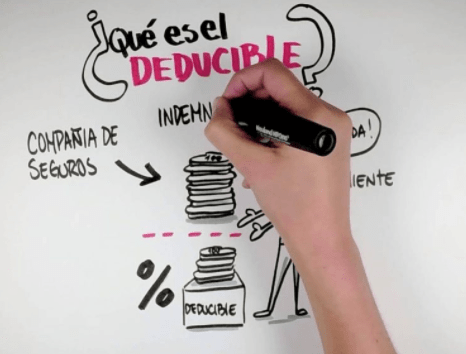 ¿Qué es el
DEDUCIBLE?
INDEMN
COMPAÑIA DE
SEGUROS
DA!
IENTE
100
%
DEDUCIBLE